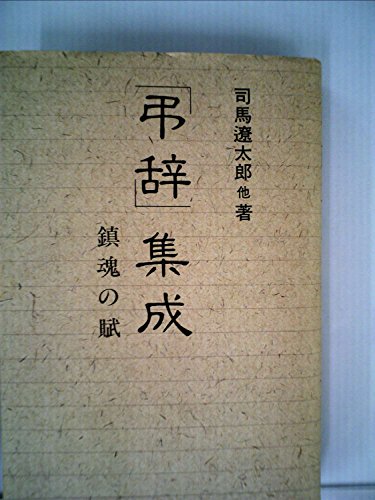 司馬遼太郎他著
「弔辞」集成
鎮魂の賦